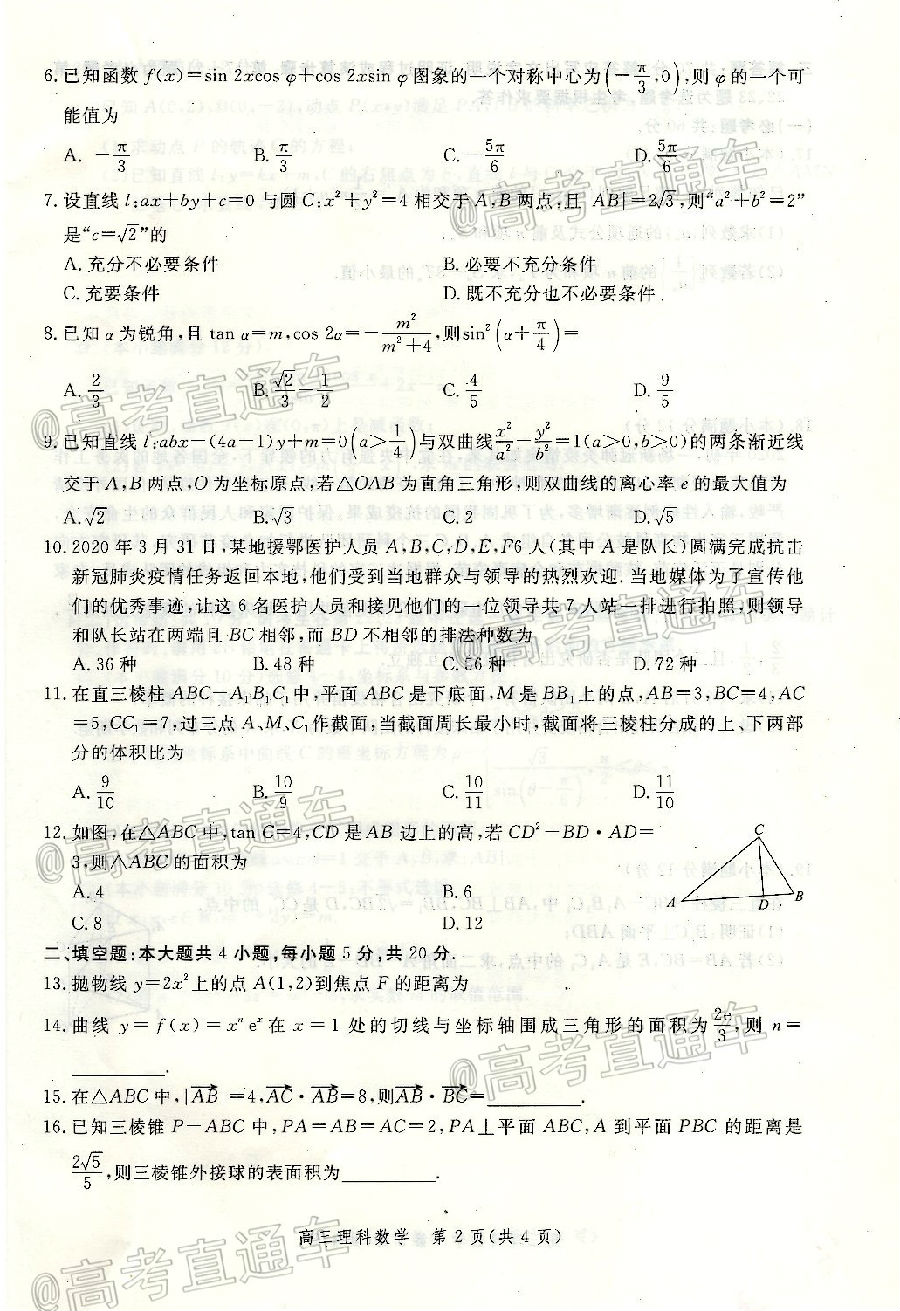 6.已知函数 f(x)=sin 2xcos φ+cos 2xsin φ 图象的一个对称中心为(-π/3,0),则 φ 的一个可
能值为
A. -π/3 B. π/3 C. -5π/6 D. 5π/6
7.设直线 l:ax+by+c=0 与圆 C:x²+y²=4 相交于 A,B 两点,且|AB|=2√3,则“a²+b²=2”
是“c=√2”的
A.充分不必要条件 B.必要不充分条件
C.充要条件 D.既不充分也不必要条件
8.已知 α 为锐角,且 tan α=m,cos 2α=-m²/(m²+4),则sin²(α+π/4)=
A. 2/3 B. √2/3=1/2 C. 4/5 D. 9/5
9.已知直线 l:abx-(4a-1)y+m=0(a>1/4)与双曲线x²/a²-y²/b²=1(a>0,b>0)的两条渐近线
交于 A,B 两点,O为坐标原点,若△OAB为直角三角形,则双曲线的离心率 e 的最大值为
A.√2 B.√3 C.2 D.√5
10.2020 年 3 月 31 日,某地援鄂医护人员 A,B,C,D,E,F6 人(其中 A 是队长)圆满完成抗击
新冠肺炎疫情任务返回本地,他们受到当地群众与领导的热烈欢迎.当地媒体为了宣传他
们的优秀事迹,让这 6 名医护人员和接见他们的一位领导共 7 人站一排进行拍照,则领导
和队长站在两端且 BC 相邻,而 BD 不相邻的排法种数为
A.36 种 B.48 种 C.56 种 D.72 种
11.在直三棱柱 ABC-A₁B₁C₁中,平面 ABC 是下底面,M 是 BB₁上的点,AB=3,BC=4,AC
=5,CC₁=7,过三点 A、M、C₁作截面,当截面周长最小时,截面将三棱柱分成的上、下两部
分的体积比为
A. 9/10 B. 10/9 C. 10/11 D. 11/10
12.如图,在△ABC中,tan C=4,CD 是 AB 边上的高,若 CD²-BD·AD=
3,则△ABC的面积为
A.4 B.6
C.8 D.12
C
A D B
二、填空题:本大题共 4 小题,每小题 5 分,共 20 分.
13.抛物线 y=2x²上的点 A(1,2)到焦点 F 的距离为
14.曲线 y=f(x)=xⁿeˣ在 x=1 处的切线与坐标轴围成三角形的面积为2e/3,则 n=
________.
15.在△ABC中,|AB|=4,AC·AB=8,则AB·BC=________.
16.已知三棱锥 P-ABC 中,PA=AB=AC=2,PA⊥平面 ABC,A 到平面 PBC 的距离是
2√5/5,则三棱锥外接球的表面积为________.
高三理科数学 第 2 页(共 4 页)
@高考直通车
@高考直通车
@高考直通车
@高考直通车
@高考直通车
@高考直通车
@高考直通车